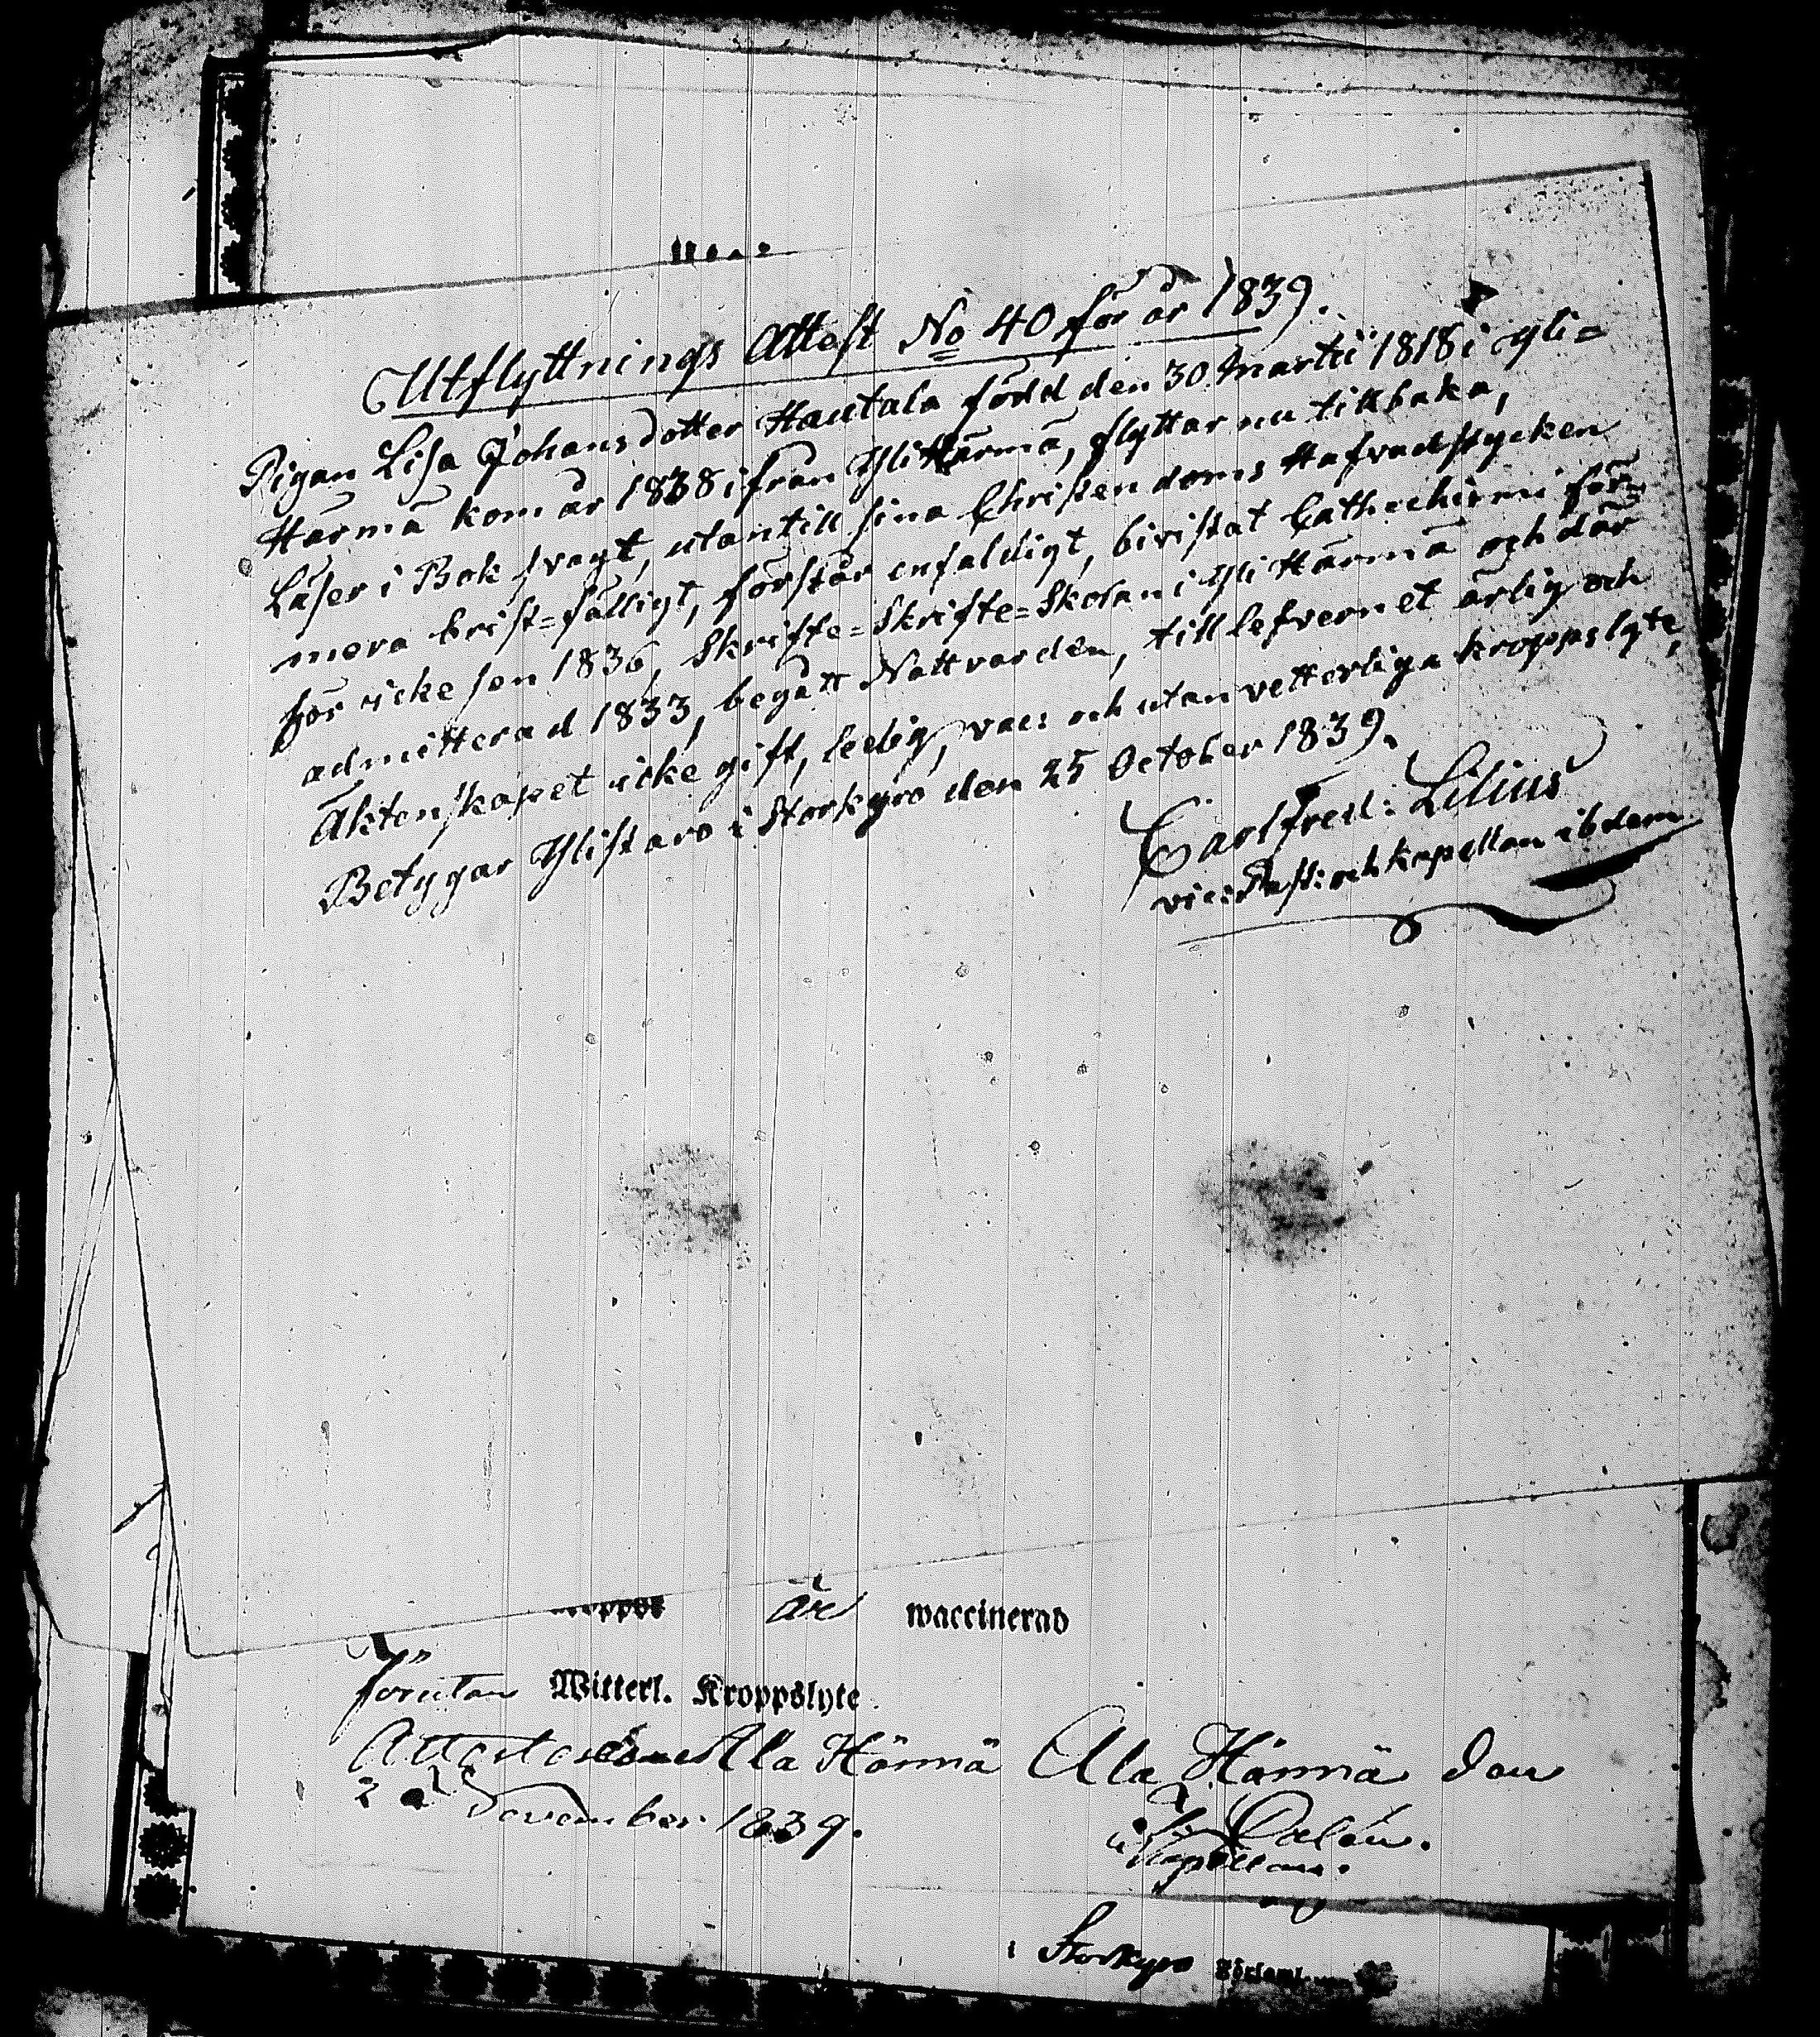 Utflyttnings Attest No 40 för år 1839.
Pigan Lisa Johansdotter Hautala född den 30 Martii 1818 i Yli=
Härmä kom år 1838 ifrån Yli Härmä, flyttar nu tillbaka,
Läser i Bok svagt, utantill sina Christendoms Hafvudstycken
mera brist=fälligt, förstår enfaldigt, bivistat Cathechismi för=
hör icke sen 1836, Skrifte=Skrifte=Skolan i Yli Härmä och där
admitterad 1833, begått Nattvarden, till lefvernet ärlig och
Äktenskapet icke gift, ledig, vac: och utan vetterliga kroppslyte,
Betygar Ylistaro i Storkyro den 25 October 1839.
Carl Fred: Lilius
vice Past: och kapellan ibdem
är waccinerad
förutan Witterl. Kroppslyte.
Ala Härmä Ala Härmä den
2 November 1839.
Dalén.
Kapellan.
i Storkyro Församl.